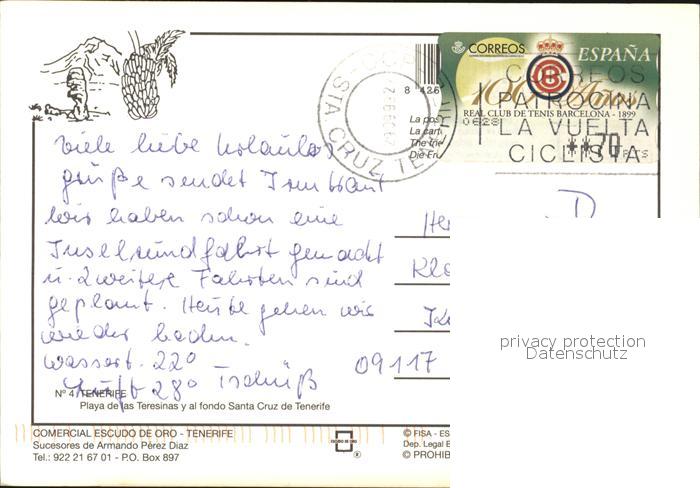 CORREOS
ESPAÑA
100 Años
REAL CLUB DE TENIS BARCELONA - 1899
CORREOS
PATROCINA
LA VUELTA
CICLISTA
**70
PTS
STA CRUZ TENERIFE
8 426
La pos
La cart
The frie
Die Fr
viele liebe Urlaubs
grüße sendet
wir haben schon eine
Inselrundfahrt gemacht
u. 2 weitere Fahrten sind
geplant. Heute gehen wir
wieder baden.
Wassert. 22°
Luft 28° Tschüß
D
09117
Nº 4 TENERIFE
Playa de las Teresinas y al fondo Santa Cruz de Tenerife
COMERCIAL ESCUDO DE ORO - TENERIFE
Sucesores de Armando Pérez Diaz
Tel.: 922 21 67 01 - P.O. Box 897
ESCUDO DE ORO
®
© FISA - ES
Dep. Legal B
© PROHIB
privacy protection
Datenschutz